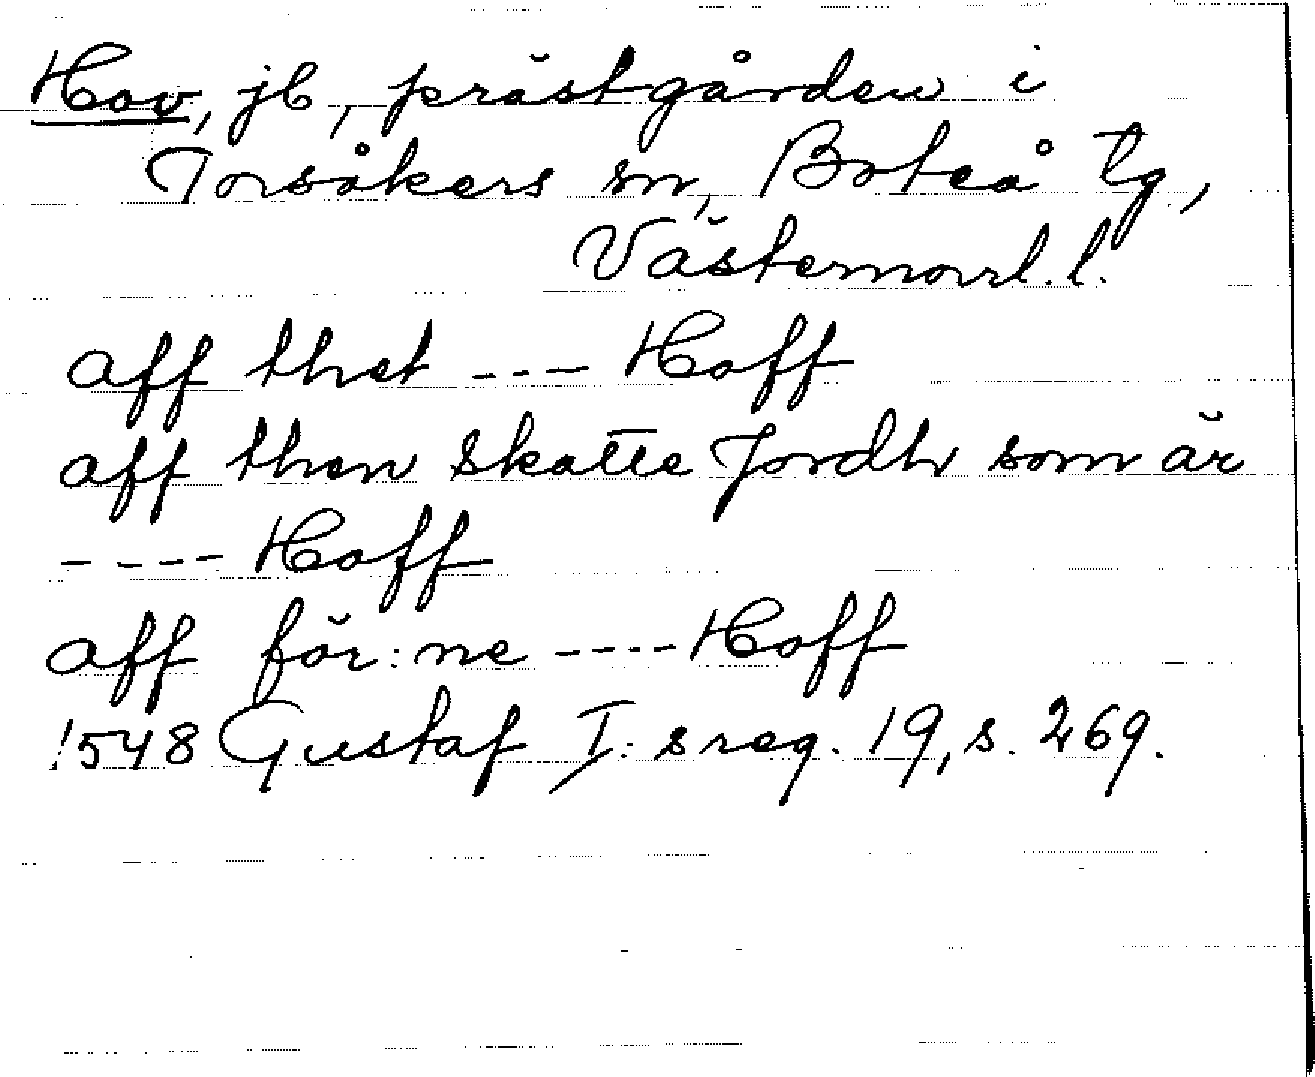 Hov, jb, prästgården i
Torsåkers sn, Boteå tg,
Västernorrl. l.
aff thet --- Hoff
aff then skatte Jordh som är
---- Hoff
aff för:ne ---- Hoff
1548 Gustaf I:s reg. 19, s. 269.